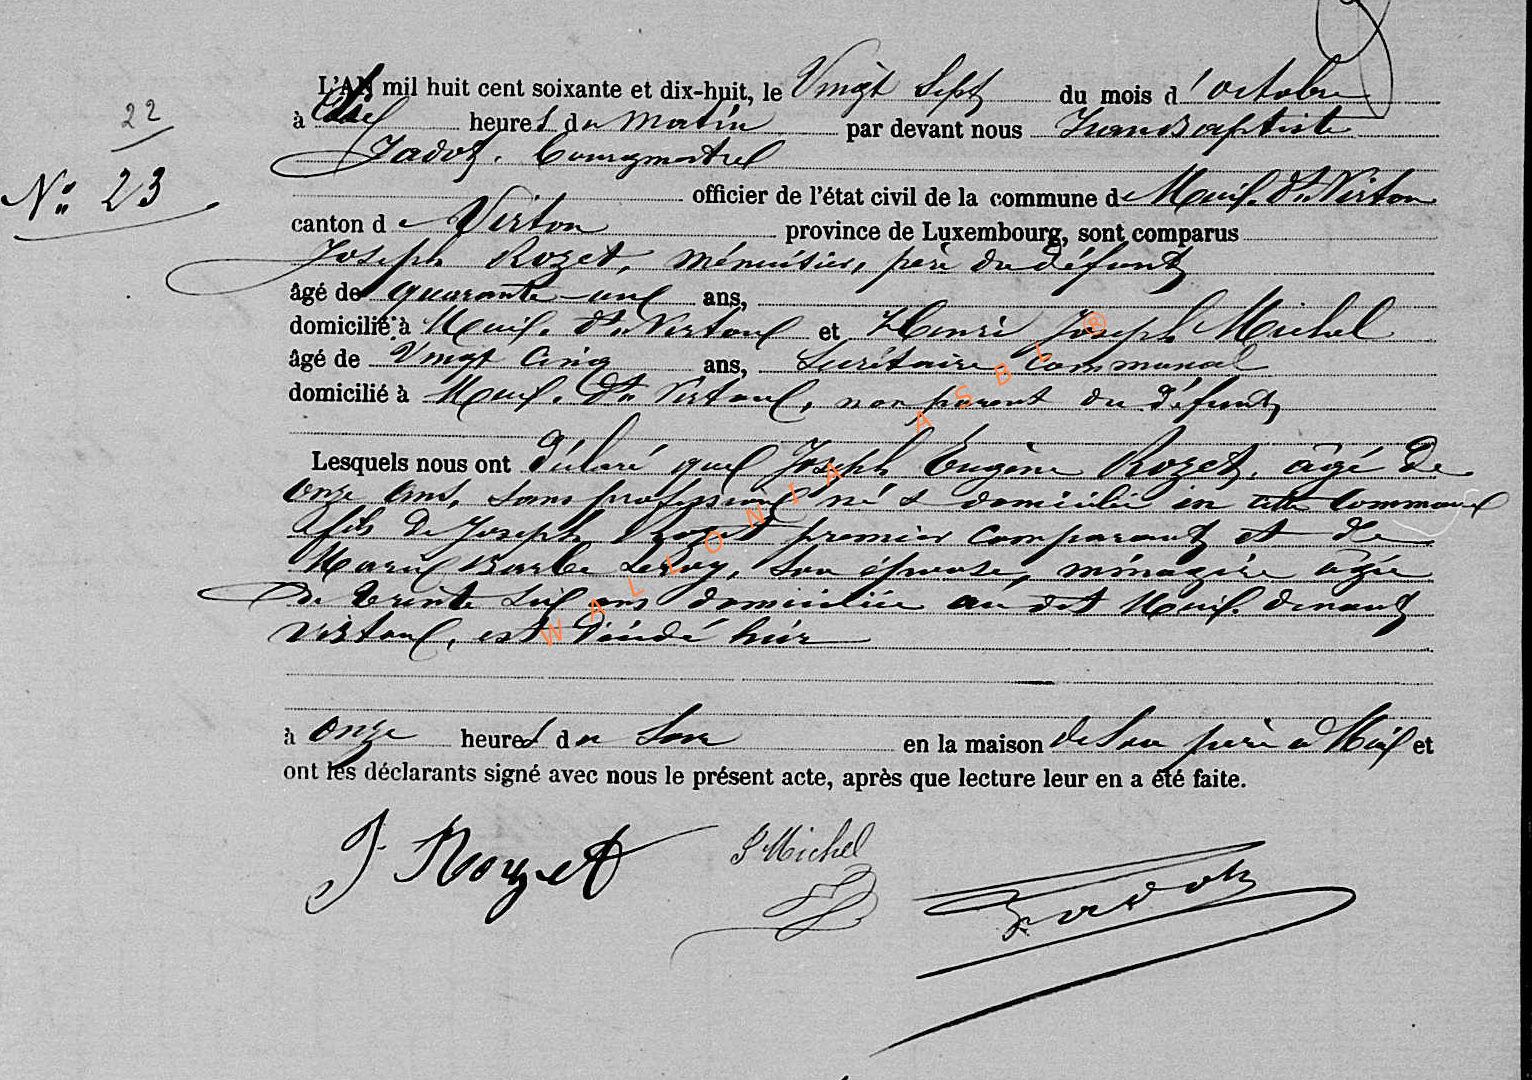 22
N° 23
L'AN mil huit cent soixante et dix-huit, le Vingt Sept du mois d'octobre
à heures du matin par devant nous Jean Baptiste
Jadot, bourgmestre
officier de l'état civil de la commune de Meix-dt-Virton
canton de Virton province de Luxembourg, sont comparus
Joseph Rozet, menuisier, père du défunt
âgé de quarante-un ans,
domicilié à Meix-dt-Virton et Henri Joseph Michel
âgé de Vingt Cinq ans, Secrétaire Communal
domicilié à Meix-dt-Virton, non parent du défunt
Lesquels nous ont déclaré que Joseph Eugène Rozet, âgé de
onze ans, sans profession né & domicilié en cette commune
fils de Joseph Rozet premier comparant et de
Marie Barbe Leroy, son épouse, ménagère âgée
de trente ans domiciliée au dit Meix-devant
Virton, est décédé hier
à onze heures du soir en la maison de son père à Meix et
ont les déclarants signé avec nous le présent acte, après que lecture leur en a été faite.
J. Rozet Michel Jadot
WALLONIA ASBL ®